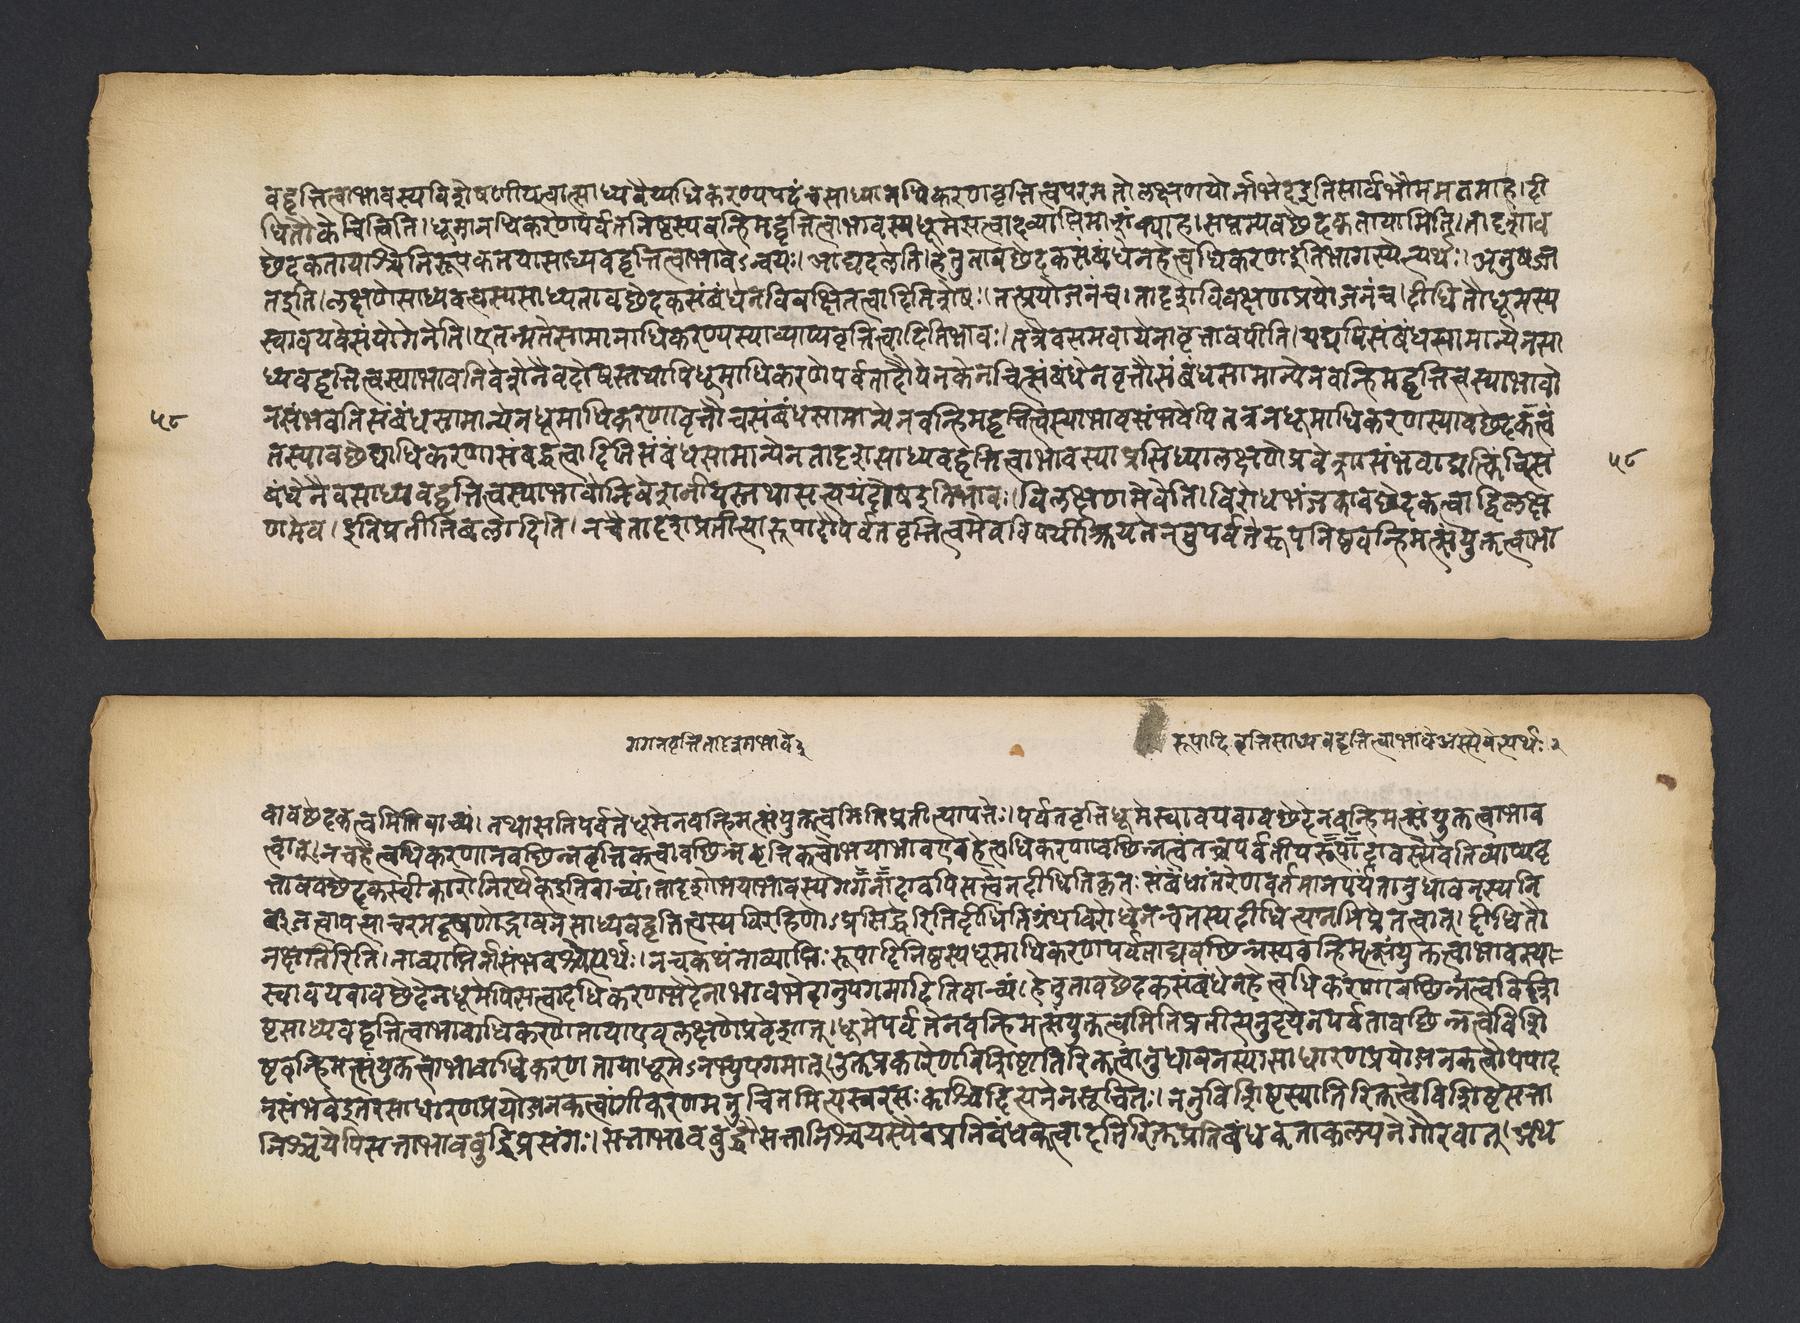 वद्वृत्तित्वाभावस्यविशेषणीयत्वात्साध्यवैय्यधिकरण्यपदंचसाध्यानधिकरणवृत्तित्वपरमतोलक्षणयोर्नाभेदइतिसार्वभौममतमाह।दी
धितौकेचित्त्विति।धूमानधिकरणेपर्वतनिष्ठस्यवन्हिमद्वृत्तित्वाभावस्यधूमेसत्वादव्याप्तिमाशंक्याह।सप्तम्यवछेदकतायामिति।तादृशाव
छेदकतायाश्चनिरूपकतयासाध्यवद्वृत्तित्वाभावेऽन्वयः।आद्यदलेति।हेतुतावछेदकसंबंधेनहेत्वधिकरणइतिभागस्येत्यर्थः।अनुषज्ज
तइति।लक्षणेसाध्यवत्त्वस्यसाध्यतावछेदकसंबंधेनविवक्षितत्वादितिशेषः।तत्प्रयोजनंच।तादृशविवक्षणप्रयोजनंच।दीधितौधूमस्य
स्वावयवेसंयोगेनेति।एतन्मतेसामानाधिकरण्यस्याव्याप्यवृत्तित्वादितिभावः।तत्रैवसमवायेनावृत्तावपीति।यद्यपिसंबंधसामान्येनसा
ध्यवद्वृत्तित्वस्याभावनिवेशेनैवदोषस्तथापिधूमाधिकरणेपर्वतादौयेनकेनचित्संबंधेनवृत्तौसंबंधसामान्येनवन्हिमद्वृत्तित्वस्याभावो
५८
नसंभवतिसंबंधसामान्येनधूमाधिकरणावृत्तौचसंबंधसामान्येनवन्हिमद्वृत्तित्वस्याभावसंभवेपितत्रनधूमाधिकरणस्यावछेदकत्वं
तस्यावछेद्याधिकरणासंबद्धत्वादितिसंबंधसामान्येनतादृशसाध्यवद्वृत्तित्वाभावस्याप्रसिध्यालक्षणेप्रवेशासंभवाद्यत्किंचित्सं
५८
बंधेनैवसाध्यवद्वृत्तित्वस्याभावोनिवेशनीयस्तथासत्ययंदोषइतिभावः।विलक्षणमेवेति।विरोधभंजकावछेदकत्वाद्विलक्ष
णमेव।इतिप्रतीतिबलादिति।नचैतादृशप्रतीत्यारूपादौपर्वतवृत्तित्वमेवविषयीक्रियतेनतुपर्वतेरूपनिष्ठवन्हिमत्संयुक्तत्वाभा
गगनवृत्तितादृशाभावे३
रूपादिवृत्तिसाध्यवद्वृत्तित्वाभावेअस्यैवेत्यर्थः२
वावछेदकत्वमितिवाच्यं।तथासतिपर्वतेधूमेनवन्हिमत्संयुक्तत्वमितिप्रतीत्यापत्तेः।पर्वतवृत्तिधूमेस्वावयवावछेदेनवन्हिमत्संयुक्तत्वाभाव
त्वात्।नचहेत्वधिकरणानवछिन्नवृत्तिकत्वावछिन्नवृत्तिकत्वोभयाभावएवहेत्वधिकरणावछिन्नत्वंतच्चपर्वतीयरूपादावस्त्येवेतिव्याप्यवृ
त्तावछेदकस्वीकारोनिरर्थकइतिवाच्यं।तादृशोभयाभावस्यगगनादावपिसत्वेनदीधितिकृतःसंबंधांतरेणवर्तमानपर्यंतानुधावनस्यनि
बीजत्वापत्त्याचरमदूषणोद्भावनेसाध्यवद्वृत्तित्वस्यविरहिणोऽप्रसिद्धेरितिदीधितिग्रंथविरोधेनचतस्यदीधित्यनभिप्रेतत्वात्।दीधितौ
नक्षतिरिति।नाव्याप्तिर्नासंभवश्चेत्यर्थः।नचकथंनाव्याप्तिःरूपादिनिष्ठस्यधूमाधिकरणपर्वताद्यवछिन्नस्यवन्हिमत्संयुक्तत्वाभावस्या
स्वावयवावछेदेनधूमेपिसत्वादधिकरणभेदेनाभावभेदानुपगमादितिवाच्यं।हेतुतावछेदकसंबंधेनहेत्वधिकरणावछिन्नत्वविशि
ष्टसाध्यवद्वृत्तित्वाभावाधिकरणतायाएवलक्षणेप्रवेशात्।धूमेपर्वतेनवन्हिमत्संयुक्तत्वमितिप्रतीत्यनुदयेनपर्वतावछिन्नत्वविशि
ष्टवन्हिमत्संयुक्तत्वाभावाधिकरणतायाधूमेऽनभ्युपगमात्।उक्तप्रकारेणविशिष्टातिरिक्तत्वानुधावनस्यासाधारणप्रयोजनकत्वोपपाद
नसंभवेइतरसाधारणप्रयोजनकत्वांगीकरणमनुचितमित्यस्वरसःकश्चिदित्यनेनसूचितः।ननुविशिष्टस्यातिरिक्तत्वेविशिष्टसत्ता
निश्चयेपिसत्ताभावबुद्धिप्रसंगः।सत्ताभावबुद्धौसत्तानिश्चयस्यैवप्रतिबंधकत्वादतिरिक्तप्रतिबंधकताकल्पनेगौरवात्।अथ